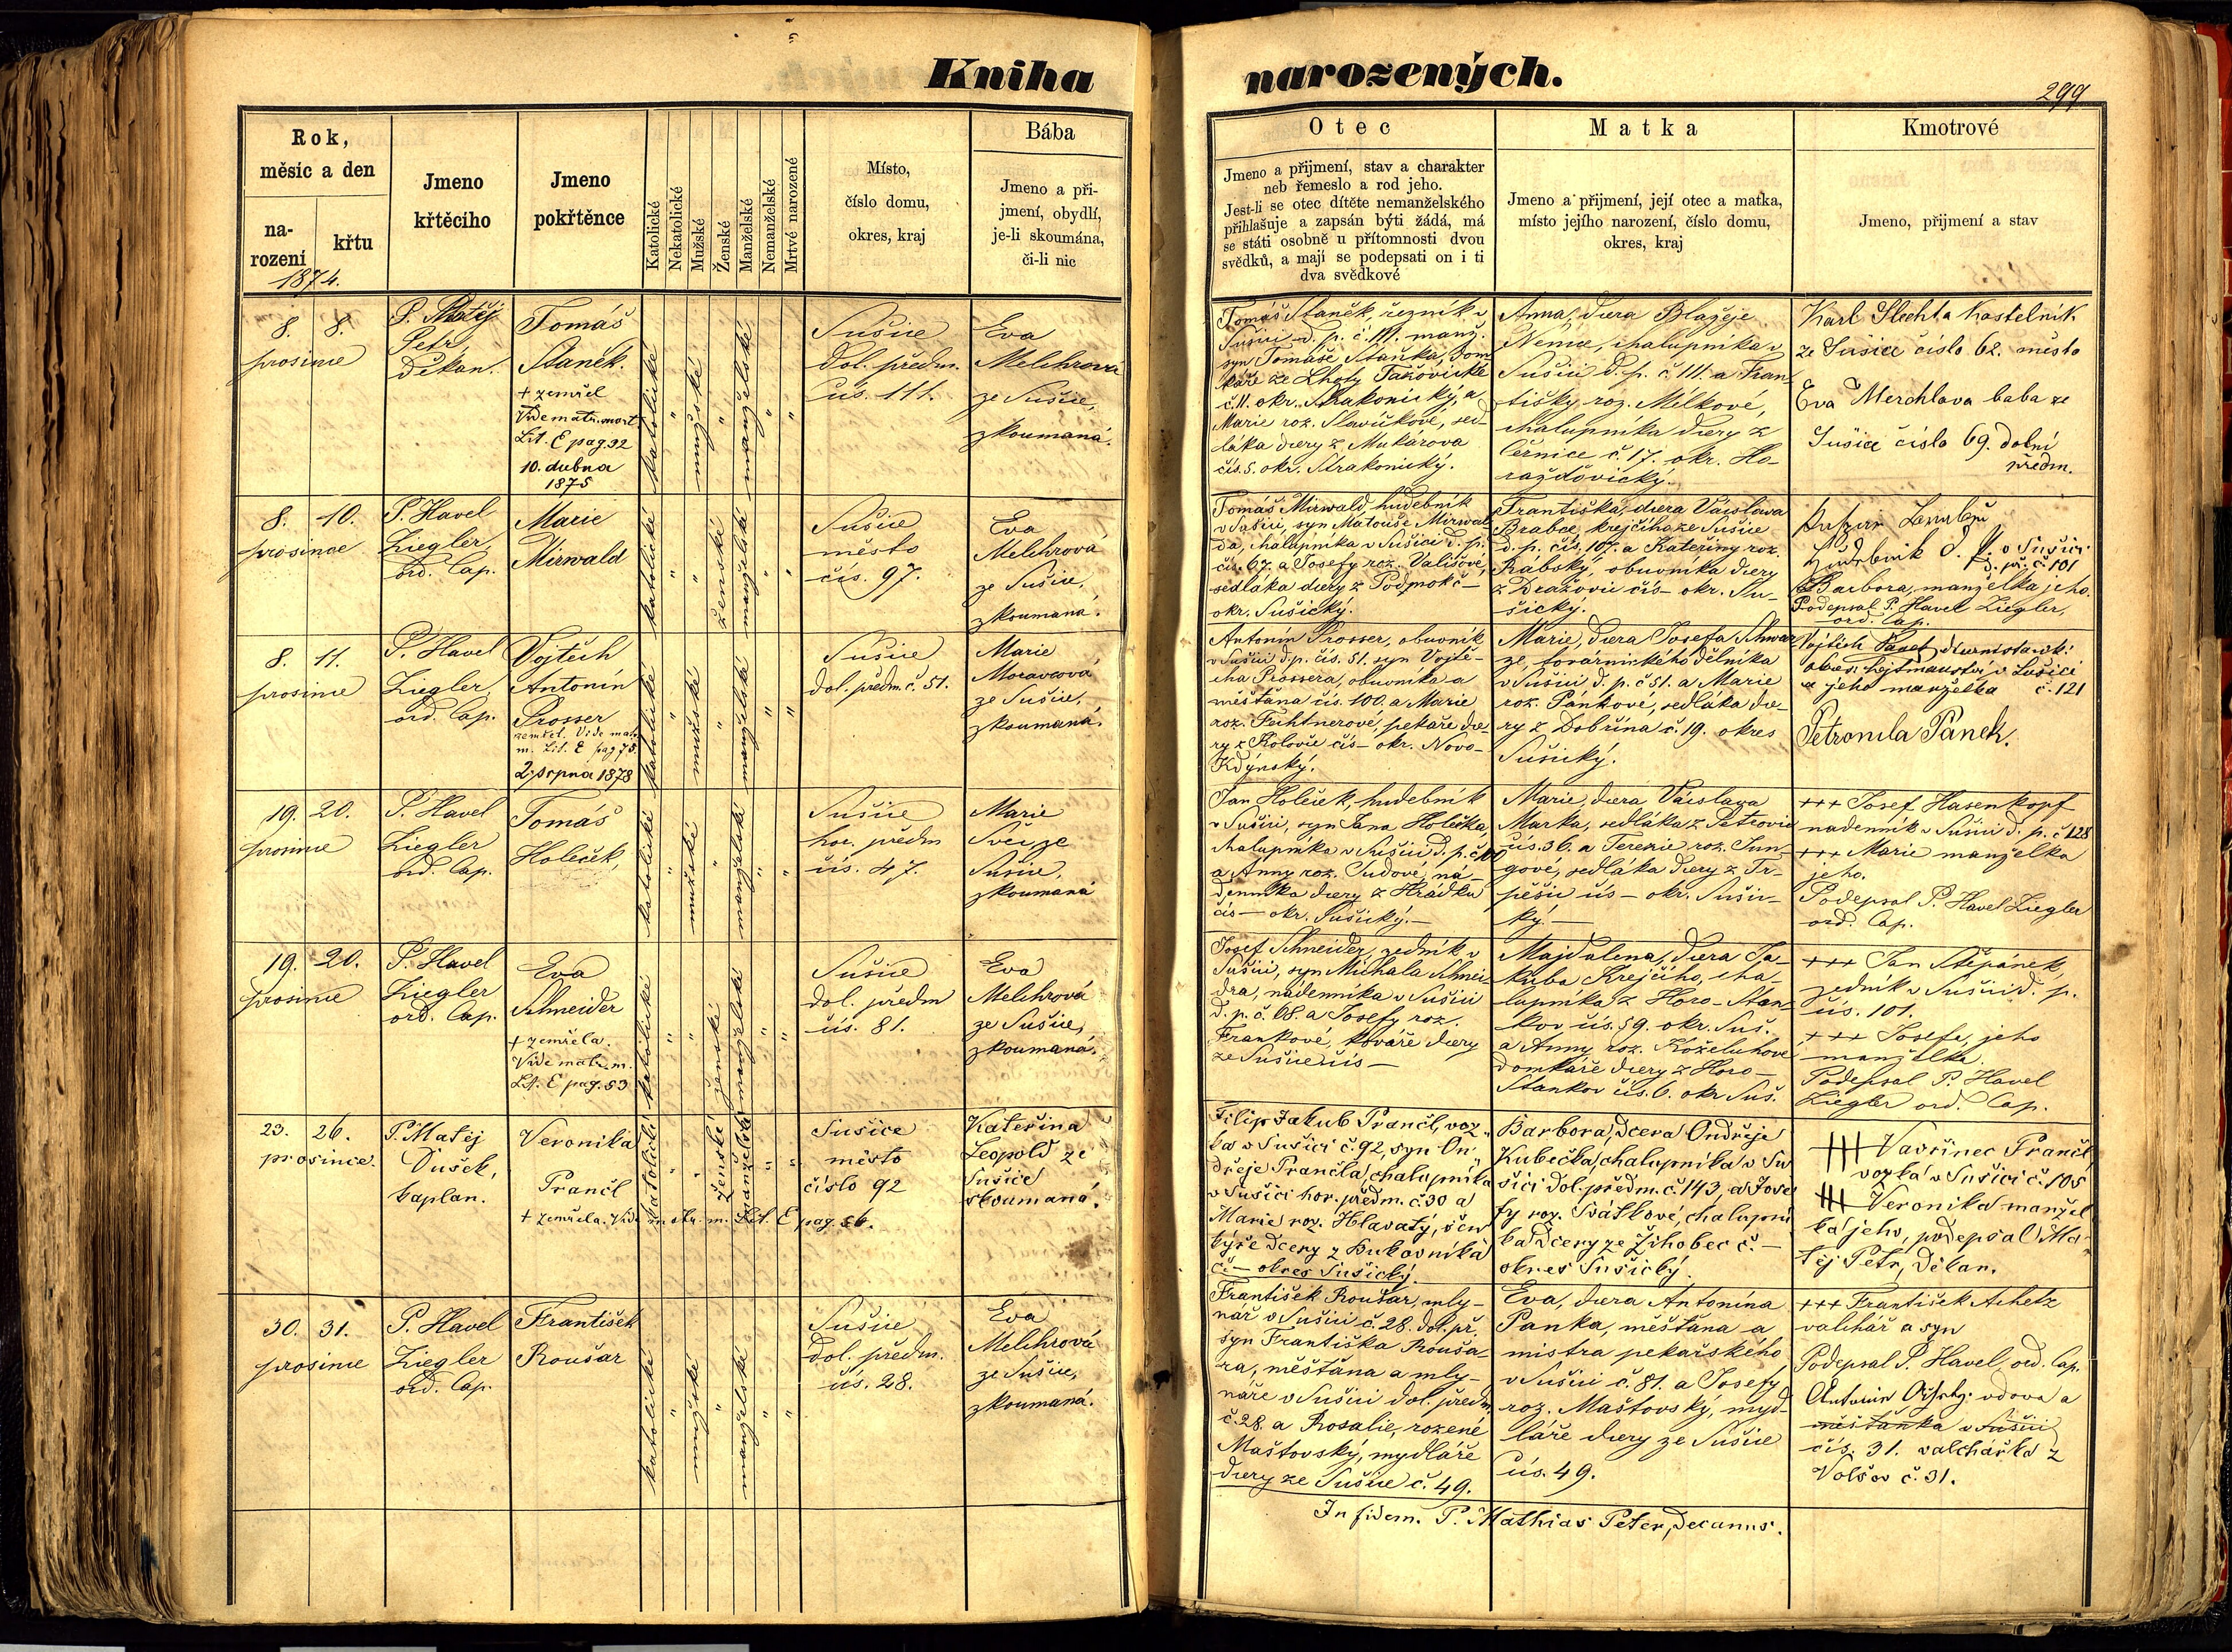 Kniha
narozených.
299
Rok,
měsíc a den
na-
rození
křtu
1874.
Jmeno
křtěcího
Jmeno
pokřtěnce
Katolické
Nekatolické
Mužské
Ženské
Manželské
Nemanželské
Mrtvé narozené
Místo,
číslo domu,
okres, kraj
Bába
Jmeno a při-
jmení, obydlí,
je-li skoumána,
či-li nic
Otec
Jmeno a přijmení, stav a charakter
neb řemeslo a rod jeho.
Jest-li se otec dítěte nemanželského
přihlašuje a zapsán býti žádá, má
se státi osobně u přítomnosti dvou
svědků, a mají se podepsati on i ti
dva svědkové
Matka
Jmeno a přijmení, její otec a matka,
místo jejího narození, číslo domu,
okres, kraj
Kmotrové
Jmeno, přijmení a stav
8. 8.
prosince
P. Matěj
Petr,
Děkan.
Tomáš
Staněk.
+ zemřel
Vide matr. mort
Lit. E pag 32
10. dubna
1875
katolické
mužské
manželské
Sušice
dol. předm.
čís. 111.
Eva
Melchrová
ze Sušice,
zkoumaná.
Tomáš Staněk, řezník v
Sušici d. p. č. 111. manž.
syn Tomáše Staňka, dom-
káře ze Lhoty Tažovické
č. 11. okr. Strakonický, a
Marie roz. Slavíčkové, sed-
láka dcery z Mukařova
čís. 5. okr. Strakonický.
Anna, dcera Blažeje
Němce, chalupníka v
Sušici d. p. č. 111. a Fran-
tišky roz. Mílkové,
chalupníka dcery z
Černice č. 17. okr. Ho-
ražďovický.
Karl Slechta kostelník
ze Sušice číslo 62. město
Eva Merchlova baba ze
Sušice číslo 69. dolní
předm.
8. 10.
prosince
P. Havel
Ziegler,
ord. Cap.
Marie
Mirwald
katolické
ženské
manželské
Sušice
město
čís. 97.
Eva
Melchrová
ze Sušice,
zkoumaná.
Tomáš Mirwald, hudebník
v Sušici, syn Matouše Mirwal-
da, chalupníka v Sušici d. p.
čís. 67. a Josefy roz. Vališové,
sedláka dcery z Podmokč –
okr. Sušický.
Františka, dcera Václava
Brabce, krejčího ze Sušice
d. p. čís. 107. a Kateřiny roz.
Rábský, obuvníka dcery
z Dražovic čís – okr. Su-
šický.
v Sušici
d. př. č. 101
Barbora, manželka jeho.
Podepsal P. Havel Ziegler,
ord. Cap.
8. 11.
prosince
P. Havel
Ziegler,
ord. Cap.
Vojtěch
Antonín
Prosser
zemřel. Vide matr.
m. Lit. E pag 75.
2. srpna 1878
katolické
mužské
manželské
Sušice
dol. předm. č. 51.
Marie
Moravcová
ze Sušice,
zkoumaná.
Antonín Prosser, obuvník
v Sušici, d. p. čís. 51. syn Vojtě-
cha Prossera, obuvníka a
měšťana čís. 100. a Marie
roz. Fichtnerové, pekaře dce-
ry z Kolovče čís – okr. Novo-
Kdýnský.
Marie, dcera Josefa Schwar-
ze, továrnického dělníka
v Sušici, d. p. č 51. a Marie
roz. Pankové, sedláka dce-
ry z Dobřína č. 19. okres
Sušický.
Vojtěch Panek,
okres. hejtmanství v Sušici
a jeho manželka č. 121
Petronila Pánek.
19. 20.
prosince
P. Havel
Ziegler
ord. Cap.
Tomáš
Holeček,
katolické
mužské
manželské
Sušice
hor. předm
čís. 47.
Marie
ze
Sušice,
zkoumaná
Jan Holeček, hudebník
v Sušici, syn Jana Holečka,
chalupníka v Sušici d. p. č. 100
a Anny roz. Dudové, ná-
denníka dcery z Hrádku
čís – okr. Sušický. –
Marie, dcera Václava
Marka, sedláka z Petrovic
čís. 36. a Terezie roz. Jun-
gové, sedláka dcery z Tr-
pěšic čís – okr. Sušic-
ký. –
+++ Josef Hasenkopf
nadenník v Sušici d. p. č 128
+++ Marie manželka
jeho.
Podepsal P. Havel Ziegler
ord. Cap.
19. 20.
prosince
P. Havel
Ziegler
ord. Cap.
Eva
Schneider
+ zemřela.
Vide matr. m.
Lit. E pag. 53
katolické
ženské
manželské
Sušice
dol. předm
čís. 81.
Eva
Melchrová
ze Sušice,
zkoumaná.
Josef Schneider, zedník v
Sušici, syn Michala Schnei-
dra, nádenníka v Sušici
d. p. č. 68. a Josefy roz.
Frankové, kováře dcery
ze Sušice čís –
Majdalena, dcera Ja-
kuba Krejčího, cha-
lupníka z Horo-Stan-
kov čís. 59. okr. Suš.
a Anny roz. Koželuhové
domkáře dcery z Horo-
Stankov čís. 6. okr Suš.
+++ Jan Štěpánek,
zedník v Sušici d. p.
čís. 101.
+++ Josefa, jeho
manželka.
Podepsal P. Havel
Ziegler ord. Cap.
23. 26.
prosince.
P. Matěj
Dušek,
kaplan.
Veronika
Prančl
+ zemřela. Vide matr. m. Lit. E pag. 56.
katolické
ženské
manželské
Sušice
město
číslo 92
Kateřina
Leopold ze
Sušice
skoumaná.
Filip Jakub Prančl, voz-
ka v Sušici č. 92, syn On-
dřeje Prančla, chalupníka
v Sušici hor. předm. č. 30 a
Marie roz. Hlavatý,
dcery z Bukovníka
č. – okres Sušický.
Barbora, dcera Ondřeje
Kubečka, chalupníka v Su-
šici dol. předm. č. 143, a Jose-
fy roz. Svátkové, chalupní-
ka dcery ze Žihobec č. –
okres Sušický.
+++ Vavřinec Prančl,
vozka v Sušici č. 105
+++ Veronika manžel-
ka jeho, podepsal Ma-
těj Petr, Děkan.
30. 31.
prosince
P. Havel
Ziegler
ord. Cap.
František
Roušar
katolické
mužské
manželské
Sušice
dol. předm.
čís. 28.
Eva
Melchrová
ze Sušice,
zkoumaná.
František Roušar, mly-
nář v Sušici č. 28. dol. př.
syn Františka Rouša-
ra, měšťana a mly-
náře v Sušici dol. předm.
č. 28. a Rosalie, rozené
Maštovský, mydláře
dcery ze Sušice č. 49.
Eva, dcera Antonína
Panka, měšťana a
mistra pekařského
v Sušici č. 81. a Josefy
roz. Maštovský, myd-
láře dcery ze Sušice
čís. 49.
+++ František Achetz
valchář a syn
Podepsal P. Havel, ord. Cap.
vdova a
měšťanka v Sušici
čís. 31. valchářka z
Volšov č. 31.
In fidem. P. Mathias Peter, decanus.